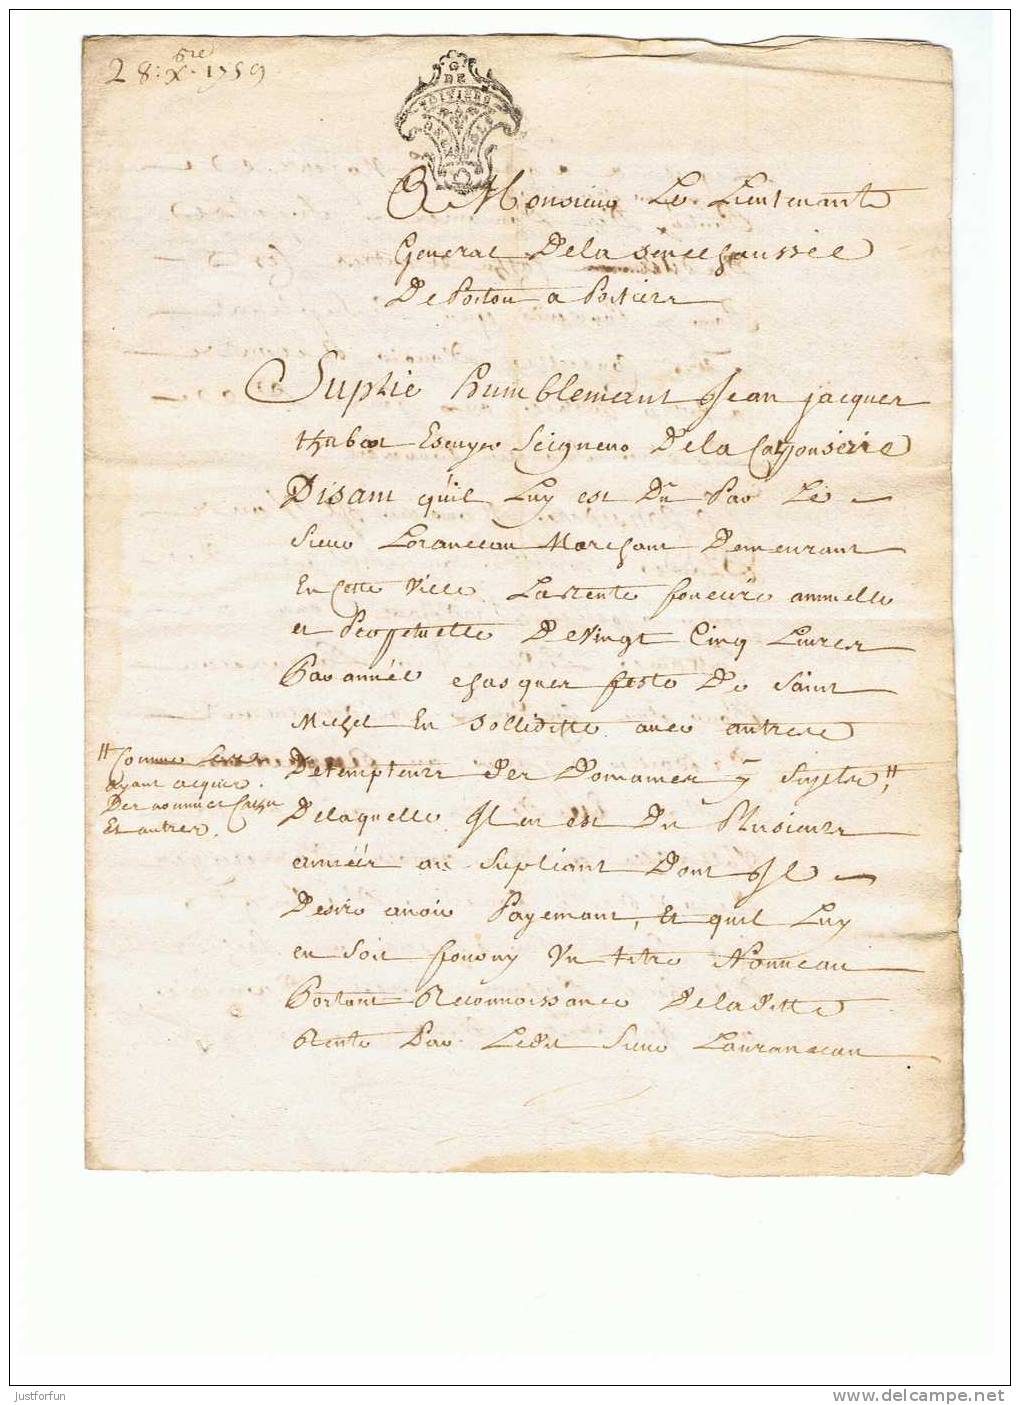 28: Xbre 1759
G
DE
POITIERS
A Monsieur Le Lieutenante
General De la Senechaussée
De Poitou a Poitiers
Suplie humblemant Jean jacques
thabot Escuyer Seigneur De la
Disant qu'il Luy est Du Par Le
Sieur Loranceau Marchant Demeurant
En Cette Ville La Rente fonciere annuelle
et Perpetuelle De Vingt Cinq Livres
Par année chasques feste De Saint
Michel En Solliditté avec autres
Detempteurs des Domaines y Sujets "
" Comme
ayant acquis
Des nommes
Et autres,
De laquelle Il en est Du Plusieurs
années au Supliant Dont Il
Desire avoir Payemant, Et quil Luy
en Soit fourny Un titre Nouveau
Portant Reconnoissance De la ditte
Rente Par Ledit Sieur Lauranceau
justforfun
www.delcampe.net